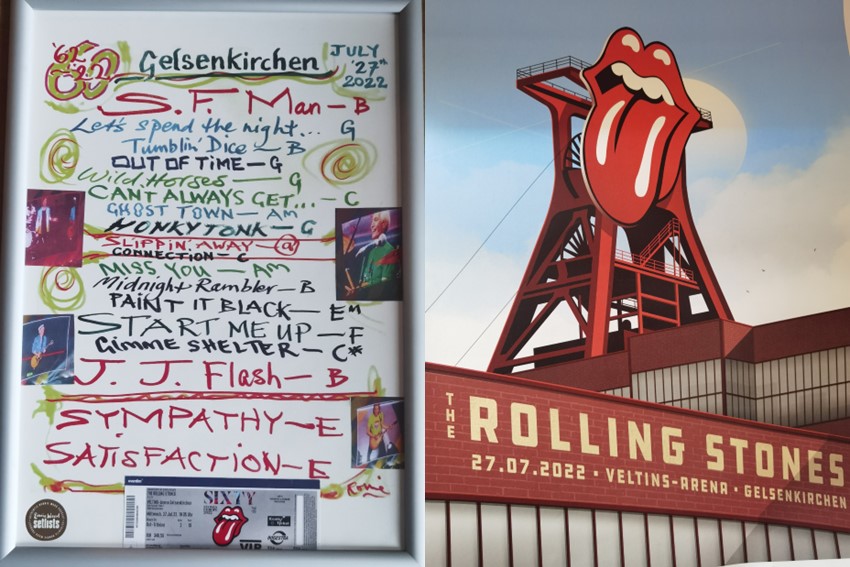 '62 2022
60
Gelsenkirchen
JULY
'27th
2022
S.F. Man — B
Let's spend the night... G
Tumblin' Dice — B
OUT OF TIME — G
Wild Horses — G
CANT ALWAYS GET... — C
GHOST TOWN — AM
HONKYTONK — G
SLIPPIN. AWAY — @
CONNECTION — C
MISS YOU — AM
Midnight Rambler — B
PAINT IT BLACK — EM
START ME UP — F
Gimme SHELTER — C#
J. J. Flash — B
SYMPATHY — E
SATISFACTION — E
Ronnie
setlists
THE ROLLING STONES
SIXTY
VIP
THE
ROLLING STONES
27.07.2022 · VELTINS-ARENA · GELSENKIRCHEN